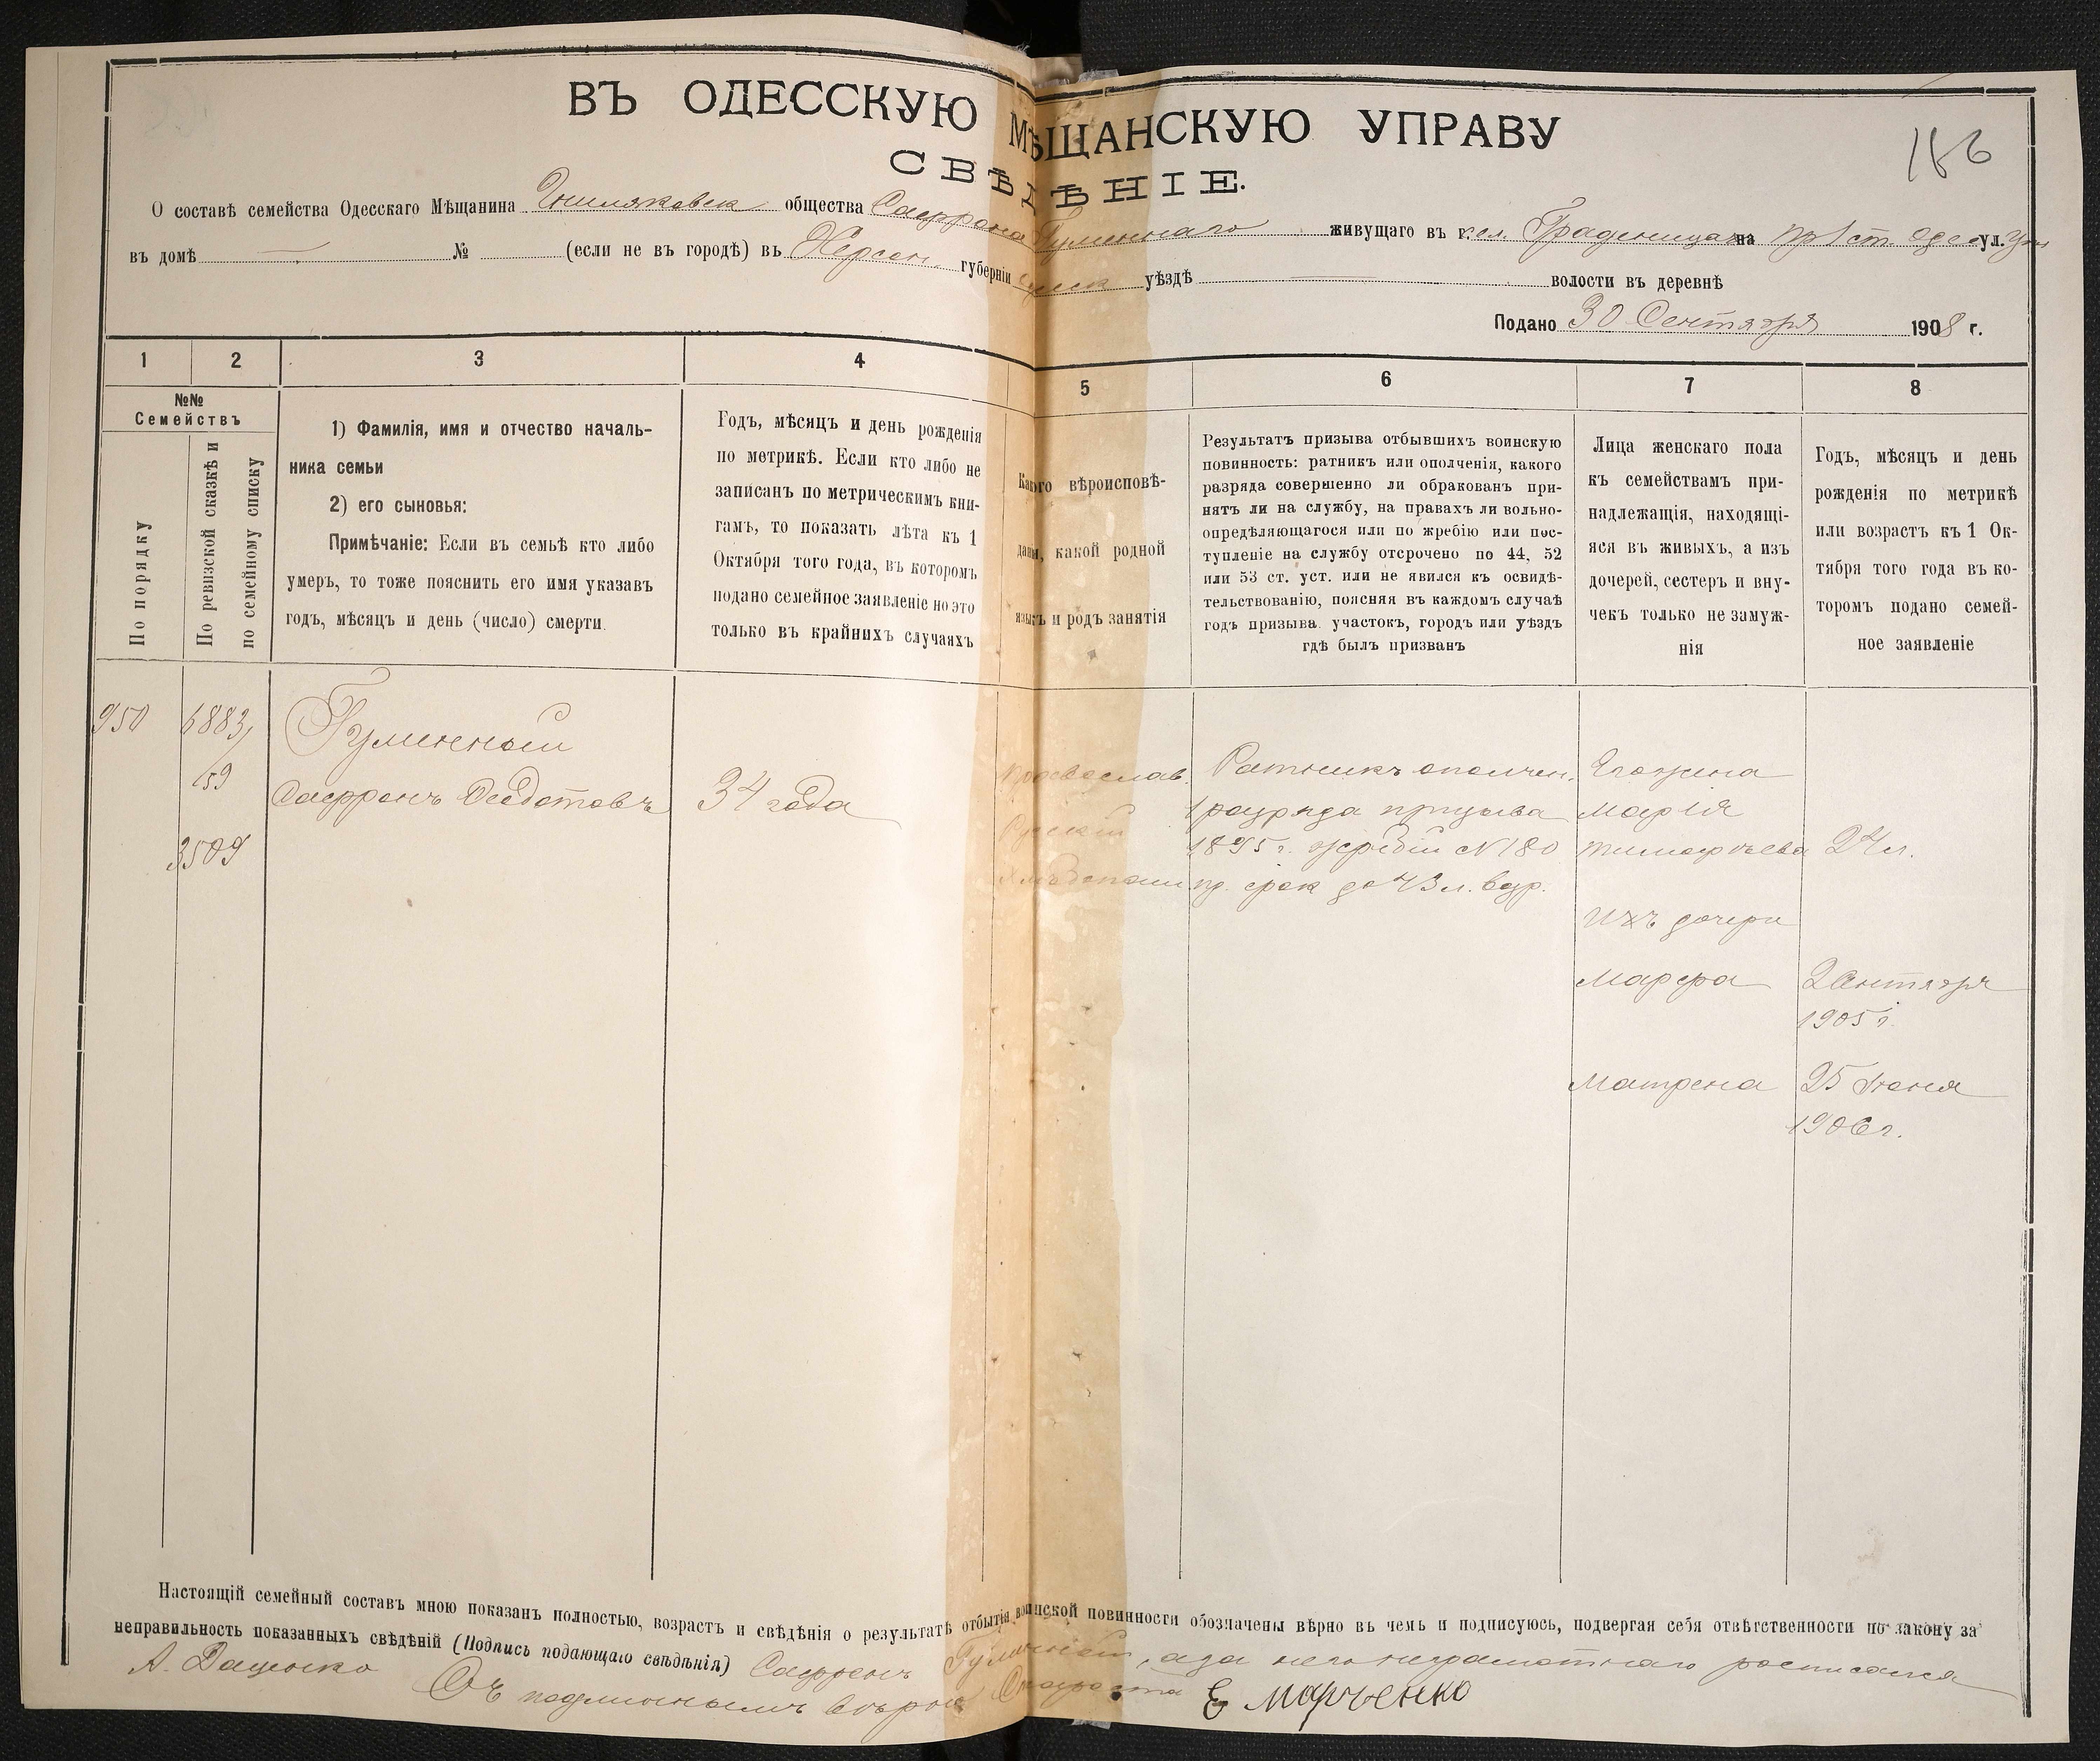 ВЪ ОДЕССКУЮ МѢЩАНСКУЮ УПРАВУ
186
СВѢДѢНІЕ.
О составѣ семейства Одесскаго Мѣщанина Гниляковск общества Сафрона Гуменнаго живущаго въ сел. Граденицахъ на ул.
въ домѣ № (если не въ городѣ) въ Херсон. губерніи уѣздѣ волости въ деревнѣ
Подано 30 Сентября 1908 г.
1 2 3 4 5 6 7 8
№№
Семействъ
По порядку
По ревизской сказкѣ и
по семейному списку
1) Фамилія, имя и отчество началь-
ника семьи
2) его сыновья:
Примѣчаніе: Если въ семьѣ кто либо
умеръ, то тоже пояснить его имя указавъ
годъ, мѣсяцъ и день (число) смерти.
Годъ, мѣсяцъ и день рожденія
по метрикѣ. Если кто либо не
записанъ по метрическимъ кни-
гамъ, то показать лѣта къ 1
Октября того года, въ которомъ
подано семейное заявленіе но это
только въ крайнихъ случаяхъ
Какого вѣроисповѣ-
данія, какой родной
языкъ и родъ занятія
Результатъ призыва отбывшихъ воинскую
повинность: ратникъ или ополченія, какого
разряда совершенно ли обракованъ при-
нятъ ли на службу, на правахъ ли вольно-
опредѣляющагося или по жребію или пос-
тупленіе на службу отсрочено по 44, 52
или 53 ст. уст. или не явился къ освидѣ-
тельствованію, поясняя въ каждомъ случаѣ
годъ призыва участокъ, городъ или уѣздъ
гдѣ былъ призванъ
Лица женскаго пола
къ семействамъ при-
надлежащія, находящі-
яся въ живыхъ, а изъ
дочерей, сестеръ и вну-
чекъ только не замуж-
нія
Годъ, мѣсяцъ и день
рожденія по метрикѣ
или возрастъ къ 1 Ок-
тября того года въ ко-
торомъ подано семей-
ное заявленіе
950
6883/
59
3509
Гуменный
Сафронъ Феодотовъ
34 года
Православ.
Русскій
Хлѣбопаш.
Ратникъ ополчен.
1 разряда призыва
1895 г. жребій № 180
срок до 43 л. возр.
Его жена
Марія
Тимофѣева 24 л.
Ихъ дочери
Марфа 2 Сентября
1905 г.
Матрена 25 Іюня
1906 г.
Настоящій семейный составъ мною показанъ полностью, возрастъ и свѣдѣнія о результатѣ отбытія воинской повинности обозначены вѣрно въ чемъ и подписуюсь, подвергая себя отвѣтственности по закону за
неправильность показанныхъ свѣдѣній (Подпись подающаго свѣдѣнія) Сафронъ Гуменный, а за него неграмотнаго росписался
А. Даценко
Съ подлиннымъ вѣрно Староста Е Марченко